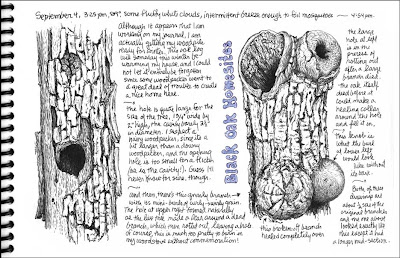 September 4, 3:25 pm, 85°, some fluffy white clouds, intermittent breeze enough to foil mosquitoes ~ 4:54 pm.
although it appears that I am
working on my journal, I am
actually getting my woodpile
ready for winter. This oak log
will someday this winter be
warming my house, and I could
not let it entirely be forgotten
since some woodpecker went to
a great deal of trouble to create
a nice home here.
The hole is quite large for the
size of the tree, 1¾" wide by
2" high, the cavity barely 3½"
in diameter. I suspect a
hairy woodpecker, since it's a
bit larger than a downy
woodpecker, and the opening
hole is too small for a flicker
(as is the cavity!). Guess I'll
never know for sure, though.
and then, there's this gnarly branch
with its mini-burls of curly-swirly grain.
The hole at upper right formed naturally
as the live tree made a collar around a dead
branch, which then rotted out, leaving a hole
of course, this is much too pretty to burn in
my woodstove without commemoration!
Black Oak Homesites
this broken-off branch
healed completely over
The large
hole at left
is in the
process of
rotting out
after a large
branch died.
The oak itself
died before it
could make a
healing collar
around the hole
and fill it in.
This branch is
what the burl
at lower left
would look
like without
its bark.
Both of these
drawings are
about ½ size of the
original branches
and the one above
looked exactly like
this except it had
a longer mid-section.